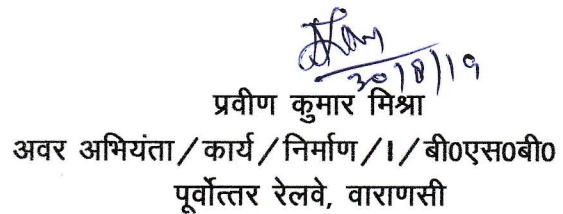 30/8/19
प्रवीण कुमार मिश्रा
अवर अभियंता/कार्य/निर्माण/।/बी0एस0बी0
पूर्वोत्तर रेलवे, वाराणसी